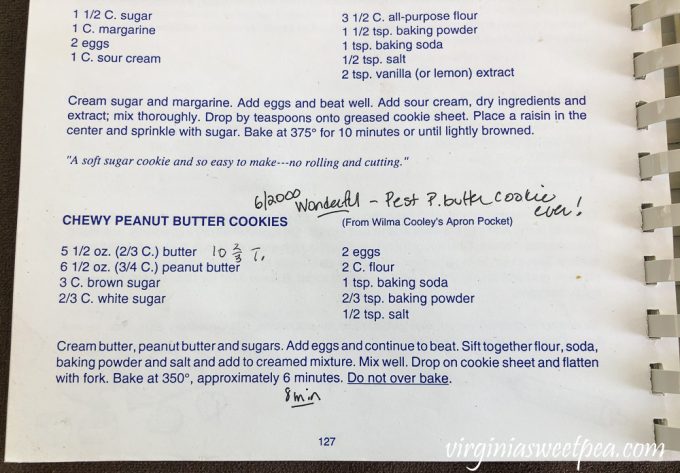 1 1/2 C. sugar
1 C. margarine
2 eggs
1 C. sour cream
3 1/2 C. all-purpose flour
1 1/2 tsp. baking powder
1 tsp. baking soda
1/2 tsp. salt
2 tsp. vanilla (or lemon) extract
Cream sugar and margarine. Add eggs and beat well. Add sour cream, dry ingredients and
extract; mix thoroughly. Drop by teaspoons onto greased cookie sheet. Place a raisin in the
center and sprinkle with sugar. Bake at 375° for 10 minutes or until lightly browned.
"A soft sugar cookie and so easy to make---no rolling and cutting."
6/2000 Wonderful - Best P. butter cookie
ever!
CHEWY PEANUT BUTTER COOKIES (From Wilma Cooley's Apron Pocket)
5 1/2 oz. (2/3 C.) butter 10 2/3 T.
6 1/2 oz. (3/4 C.) peanut butter
3 C. brown sugar
2/3 C. white sugar
2 eggs
2 C. flour
1 tsp. baking soda
2/3 tsp. baking powder
1/2 tsp. salt
Cream butter, peanut butter and sugars. Add eggs and continue to beat. Sift together flour, soda,
baking powder and salt and add to creamed mixture. Mix well. Drop on cookie sheet and flatten
with fork. Bake at 350°, approximately 6 minutes. Do not over bake.
8 min
127
virginiasweetpea.com